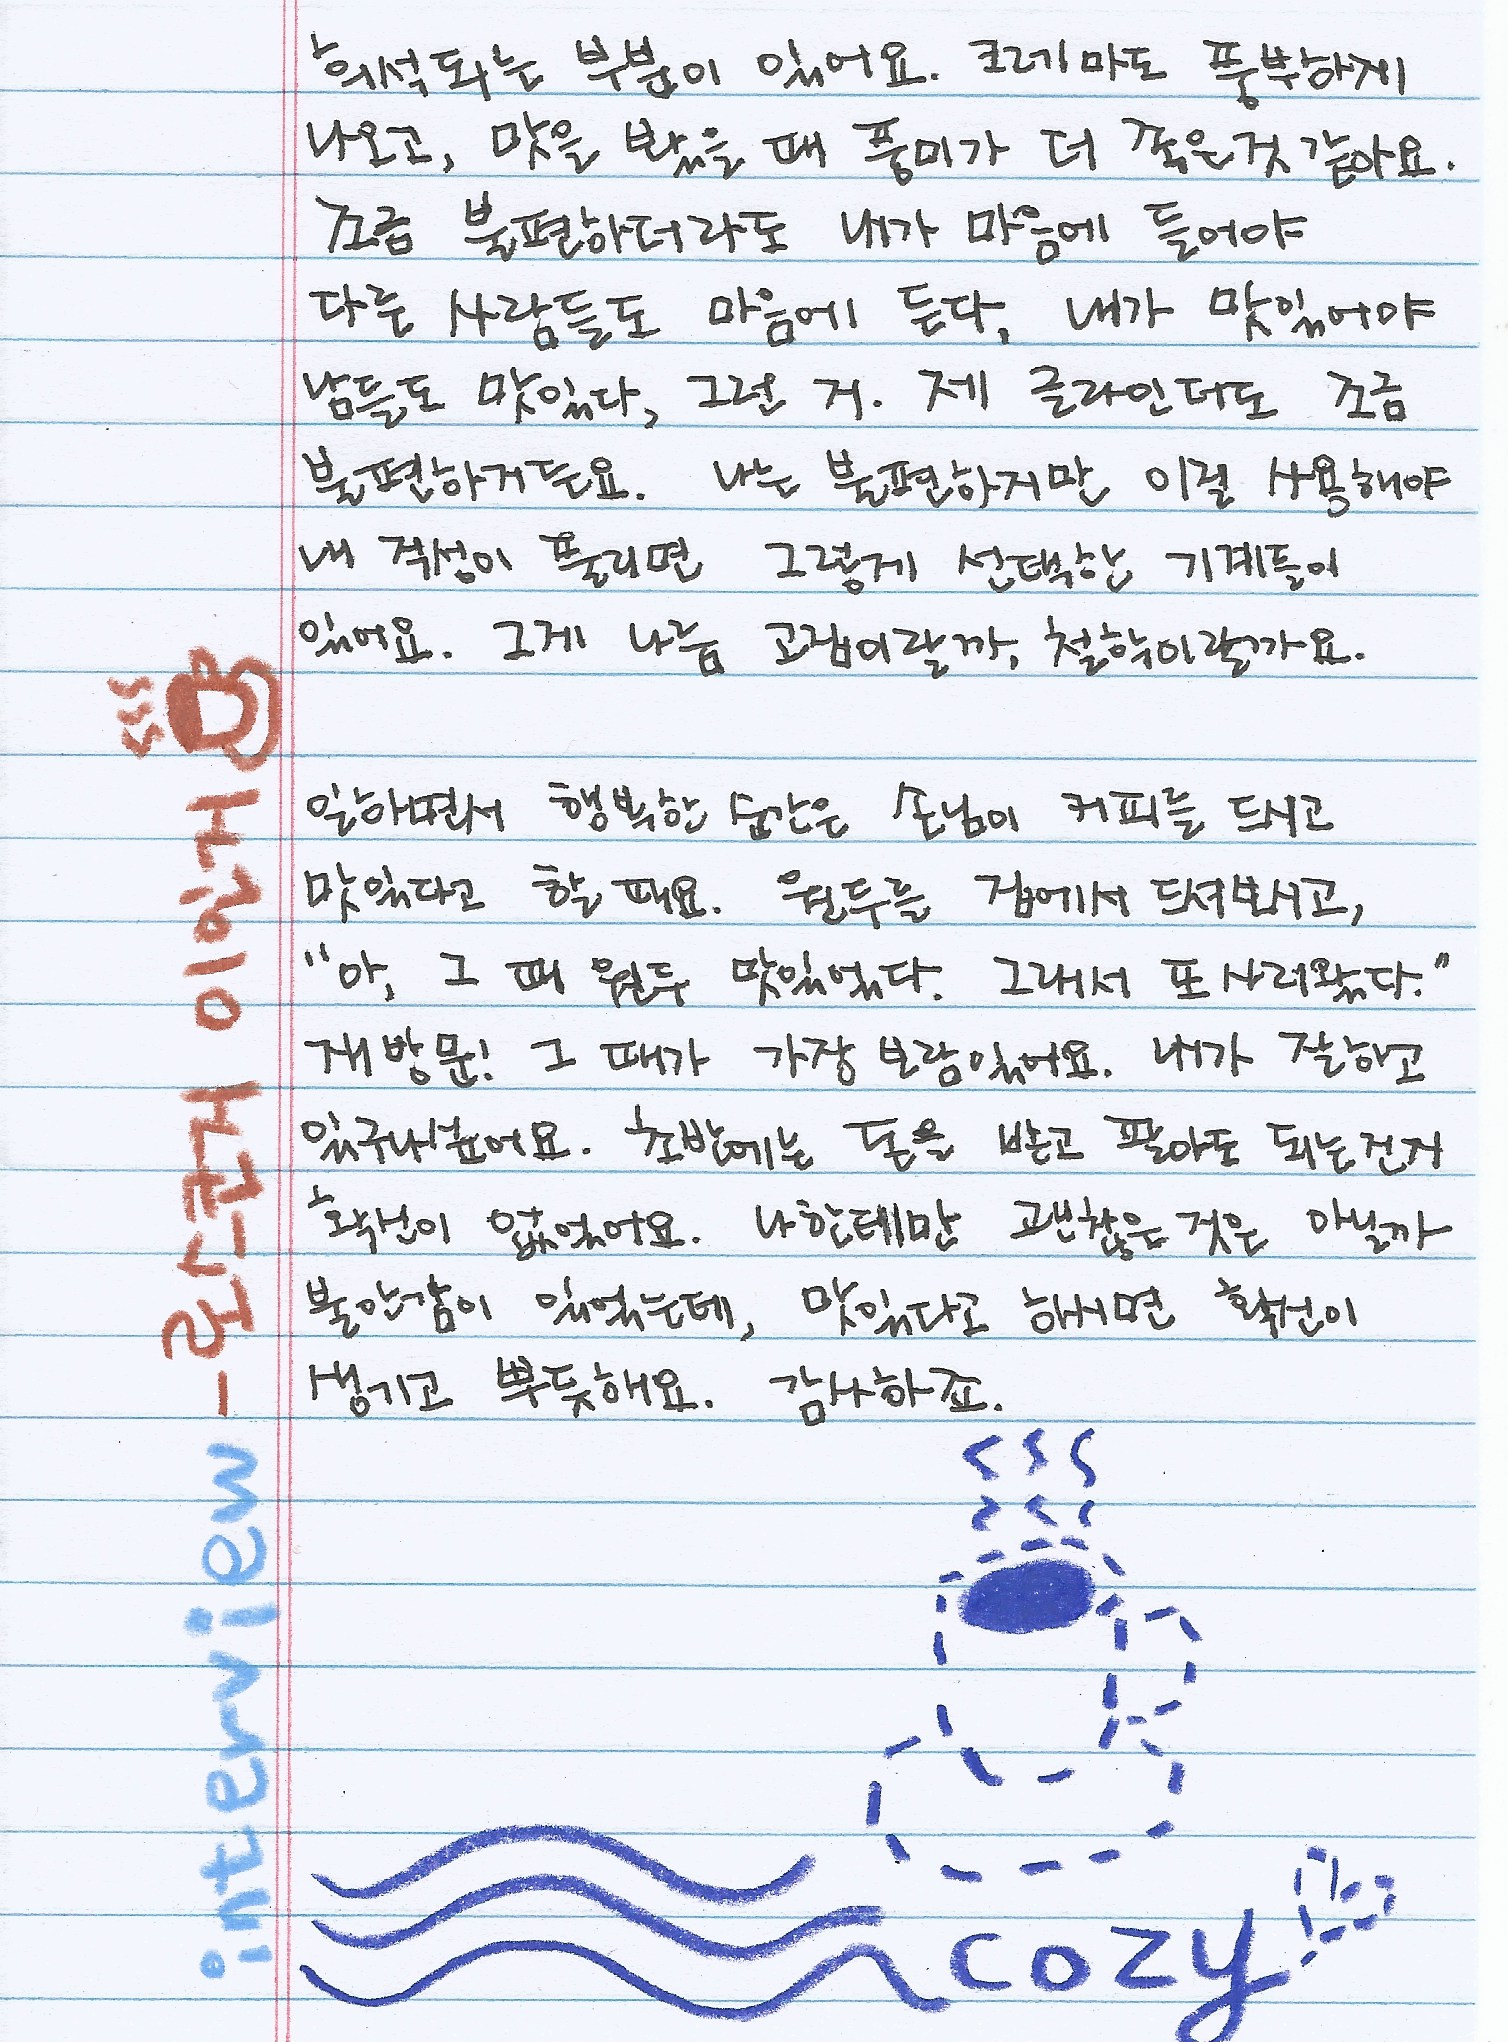 희석되는 부분이 있어요. 크레마도 풍부하게
나오고, 맛을 봤을 때 풍미가 더 좋은것 같아요.
조금 불편하더라도 내가 마음에 들어야
다른 사람들도 마음에 든다, 내가 맛있어야
남들도 맛있다, 그런 거. 제 글라인더도 조금
불편하거든요. 나는 불편하지만 이걸 사용해야
내 적성이 풀리면 그렇게 선택한 기계들이
있어요. 그게 나름 고집이랄까, 철학이랄까요.
일하면서 행복한 순간은 손님이 커피를 드시고
맛있다고 할 때요. 원두를 집에서 드셔보시고,
"아, 그 때 원두 맛있었다. 그래서 또 사러왔다."
재방문! 그 때가 가장 보람있어요. 내가 잘하고
있구나싶어요. 초반에는 돈을 받고 팔아도 되는건지
확신이 없었어요. 나한테만 괜찮은 것은 아닐까
불안감이 있었는데, 맛있다고 하시면 확신이
생기고 뿌듯해요. 감사하죠.
interview - 로스터 이인거
cozy